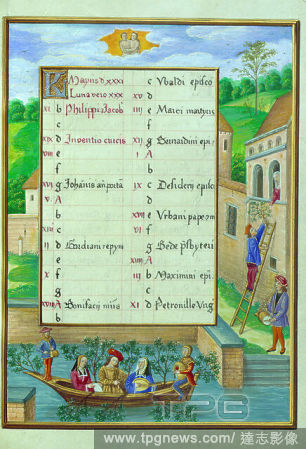 KL Maius d XXXI
Luna vero XXX
XI b Philippi Jacob
c
XIX d Inventio crucis
VIII e
f
XVI g Johānis an portā
V A
b
XIII c
II d Gordiani
e
X f
g
XVIII A Bonifacii
b
c Vbaldi episco
XV d
IIII e Marci martyris
f
XII g Bernardini epi
I A
b
IX c Desiderii episco
d
XVII e Vrbani pape
VI f
g Bede
XIIII A
III b Maximini epi
c
XI d Petronille
TPG
www.tpgnews.com/達志影像